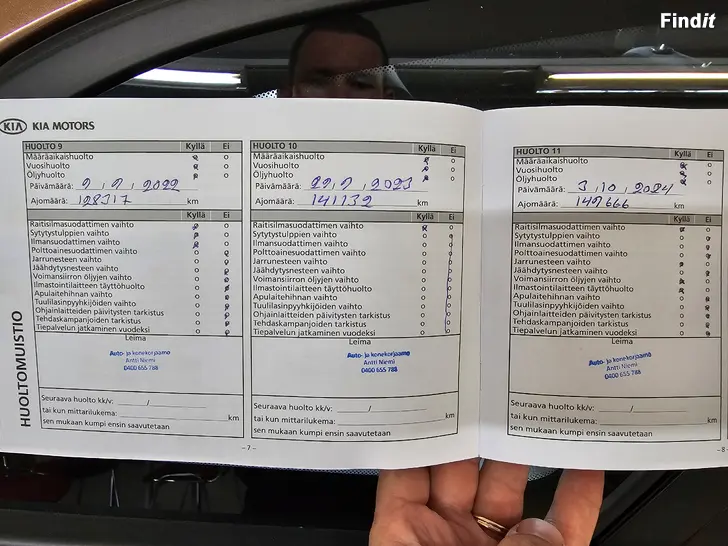 Findit
KIA KIA MOTORS
HUOLTOMUISTIO
HUOLTO 9 Kyllä Ei
Määräaikaishuolto
Vuosihuolto
Öljyhuolto
Päivämäärä: 2022
Ajomäärä: 128317 km
Kyllä Ei
Raitisilmasuodattimen vaihto
Sytytystulppien vaihto
Ilmansuodattimen vaihto
Polttoainesuodattimen vaihto
Jarrunesteen vaihto
Jäähdytysnesteen vaihto
Voimansiirron öljyjen vaihto
Ilmastointilaitteen täyttöhuolto
Apulaitehihnan vaihto
Tuulilasinpyyhkijöiden vaihto
Ohjainlaitteiden päivitysten tarkistus
Tehdaskampanjoiden tarkistus
Tiepalvelun jatkaminen vuodeksi
Leima
Auto- ja konekorjaamo
Antti Niemi
0400 655 788
Seuraava huolto kk/v: /
tai kun mittarilukema: km
sen mukaan kumpi ensin saavutetaan
HUOLTO 10 Kyllä Ei
Määräaikaishuolto
Vuosihuolto
Öljyhuolto
Päivämäärä: 2023
Ajomäärä: 141132 km
Kyllä Ei
Raitisilmasuodattimen vaihto
Sytytystulppien vaihto
Ilmansuodattimen vaihto
Polttoainesuodattimen vaihto
Jarrunesteen vaihto
Jäähdytysnesteen vaihto
Voimansiirron öljyjen vaihto
Ilmastointilaitteen täyttöhuolto
Apulaitehihnan vaihto
Tuulilasinpyyhkijöiden vaihto
Ohjainlaitteiden päivitysten tarkistus
Tehdaskampanjoiden tarkistus
Tiepalvelun jatkaminen vuodeksi
Leima
Auto- ja konekorjaamo
Antti Niemi
0400 655 788
Seuraava huolto kk/v: /
tai kun mittarilukema: km
sen mukaan kumpi ensin saavutetaan
- 7 -
HUOLTO 11 Kyllä Ei
Määräaikaishuolto
Vuosihuolto
Öljyhuolto
Päivämäärä: 3 , 10 , 2024
Ajomäärä: 149666 km
Kyllä Ei
Raitisilmasuodattimen vaihto
Sytytystulppien vaihto
Ilmansuodattimen vaihto
Polttoainesuodattimen vaihto
Jarrunesteen vaihto
Jäähdytysnesteen vaihto
Voimansiirron öljyjen vaihto
Ilmastointilaitteen täyttöhuolto
Apulaitehihnan vaihto
Tuulilasinpyyhkijöiden vaihto
Ohjainlaitteiden päivitysten tarkistus
Tehdaskampanjoiden tarkistus
Tiepalvelun jatkaminen vuodeksi
Leima
Auto- ja konekorjaamo
Antti Niemi
0400 655 788
Seuraava huolto kk/v: /
tai kun mittarilukema: km
sen mukaan kumpi ensin saavutetaan
- 8